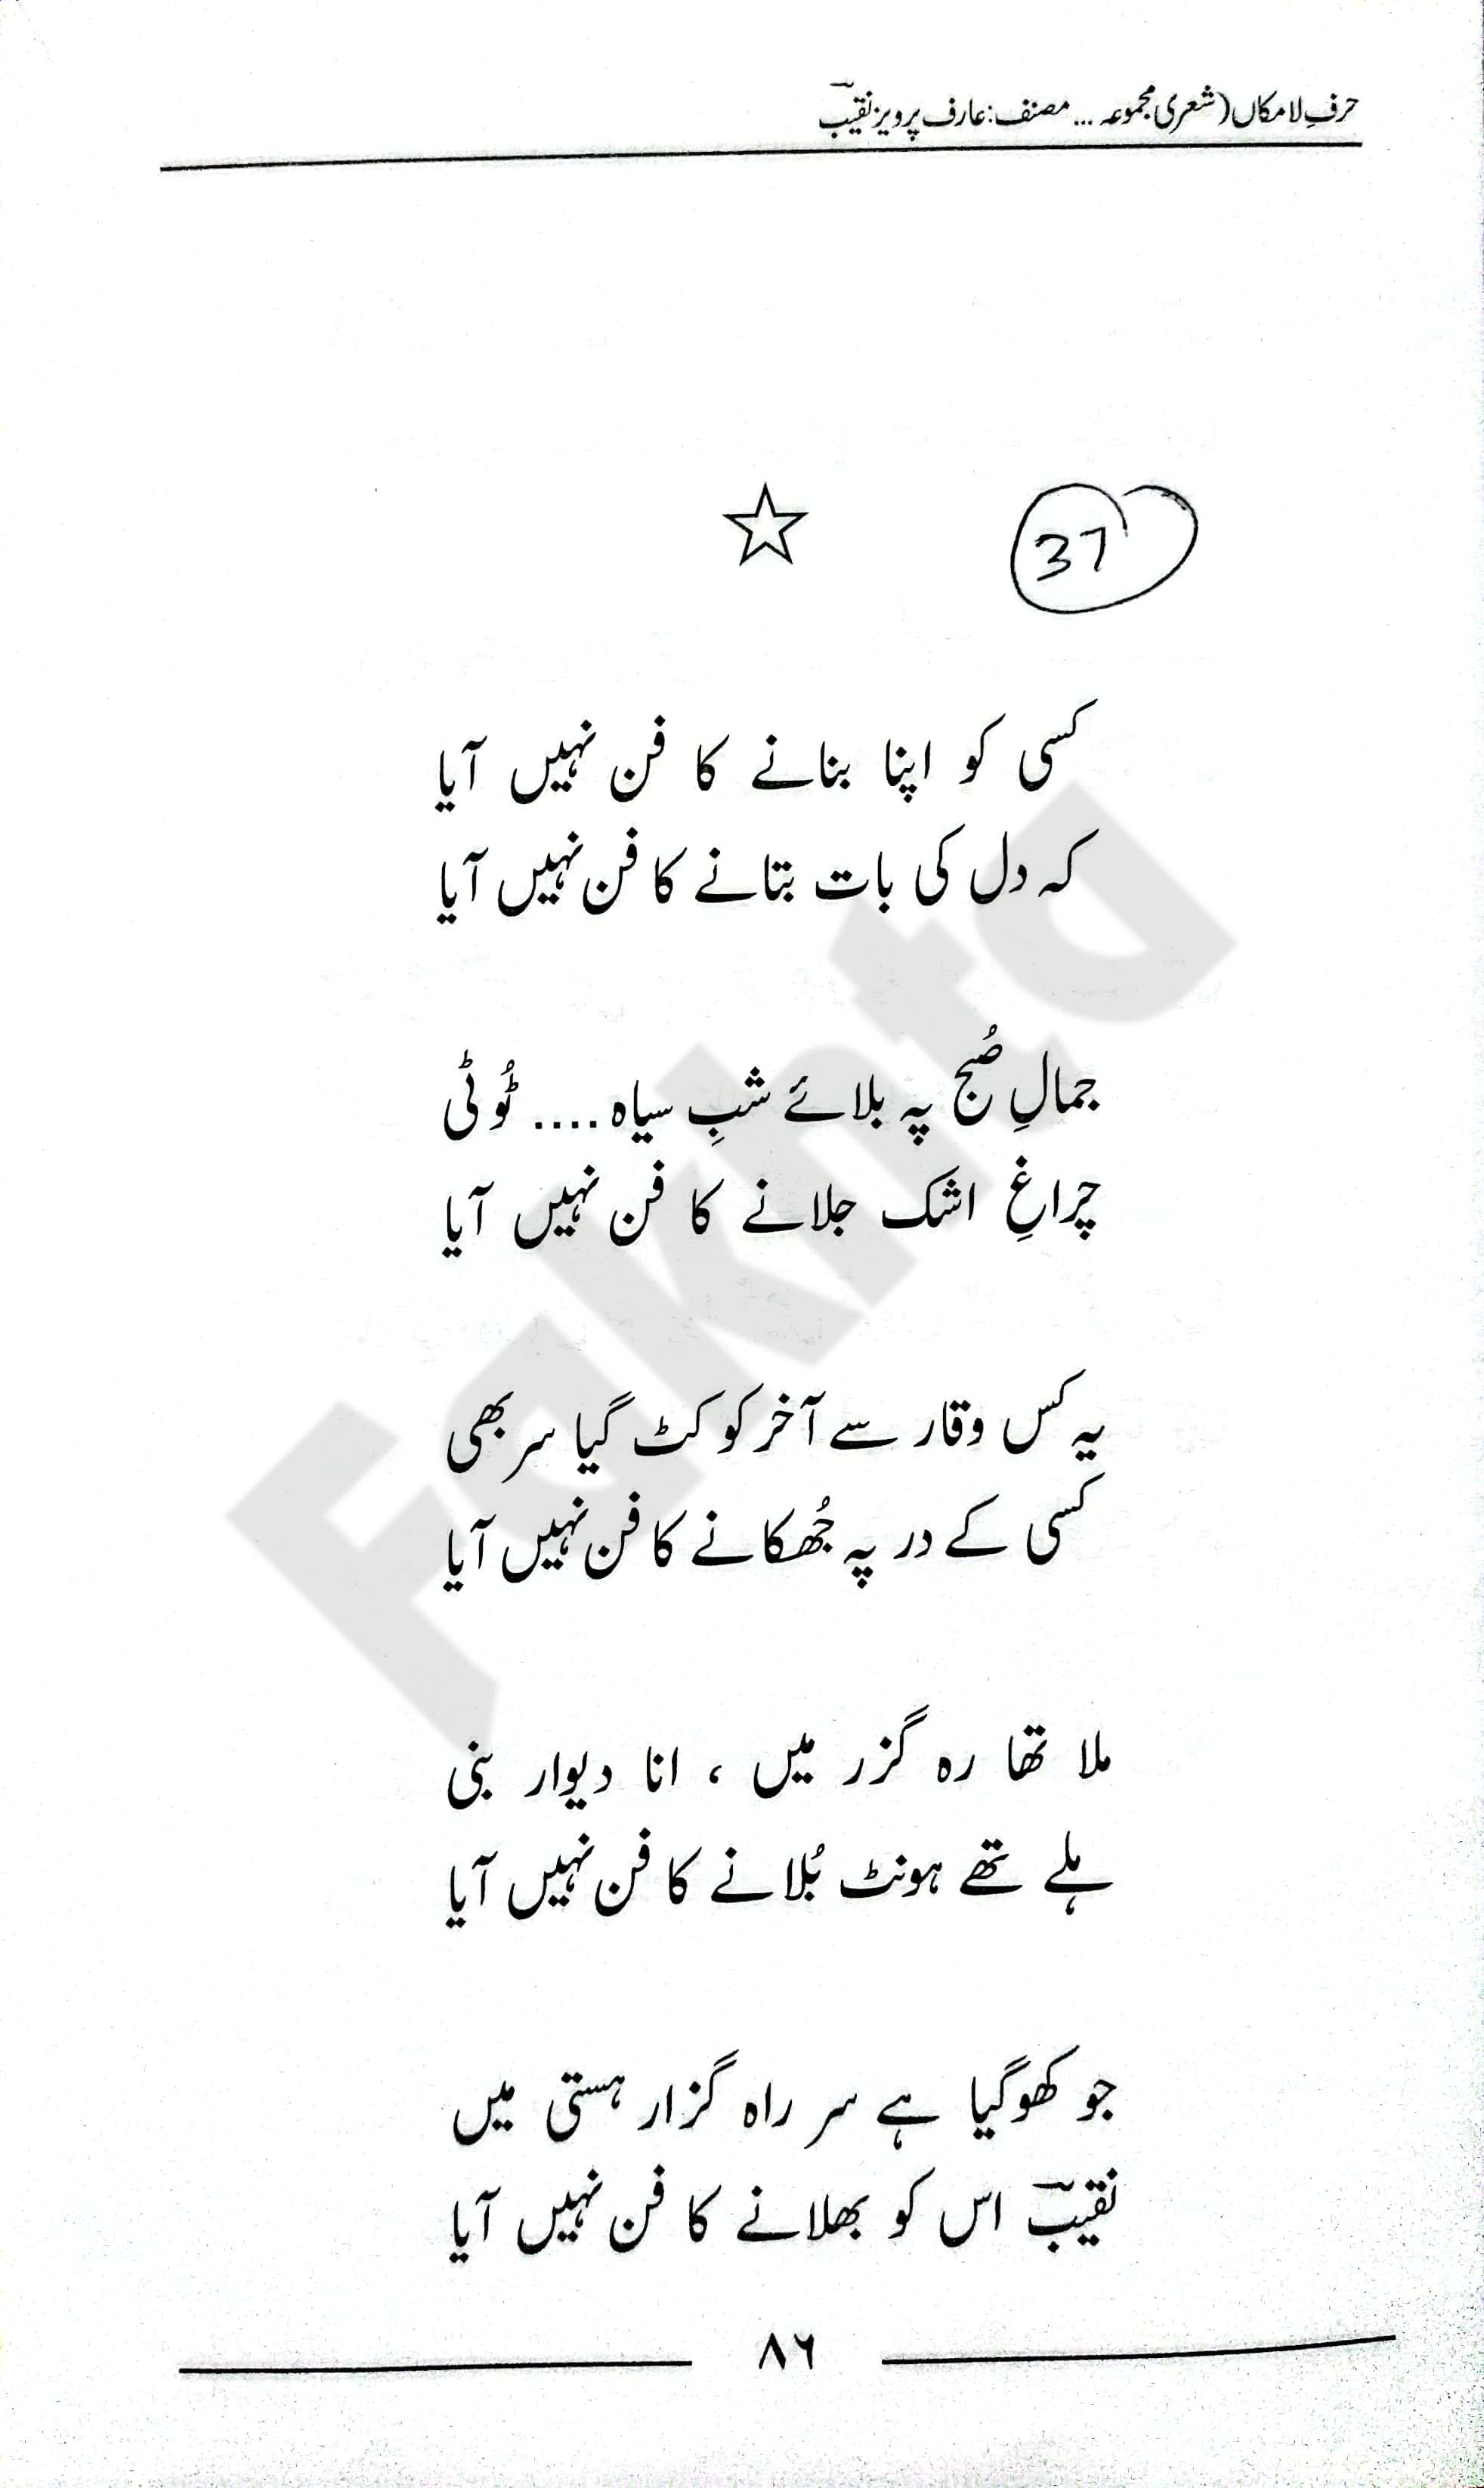 حرفِ لامکاں (شعری مجموعہ ... مصنف: عارف پرویز نقیبؔ
37
کسی کو اپنا بنانے کا فن نہیں آیا
کہ دل کی بات بتانے کا فن نہیں آیا
جمالِ صُبح پہ بلائے شبِ سیاہ .... ٹُوٹی
چراغِ اشک جلانے کا فن نہیں آیا
یہ کس وقار سے آخر کو کٹ گیا سر بھی
کسی کے در پہ جُھکانے کا فن نہیں آیا
ملا تھا رہ گزر میں ، انا دیوار بنی
ہلے تھے ہونٹ بُلانے کا فن نہیں آیا
جو کھو گیا ہے سر راہ گزار ہستی میں
نقیبؔ اس کو بھلانے کا فن نہیں آیا
۸۶
Fakhta